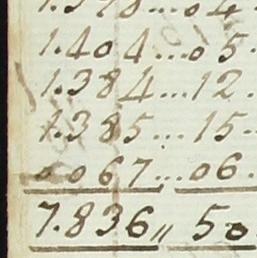 1.404...05.
1.384...12.
1.385...15..
0.067...06.
7.836,, 50